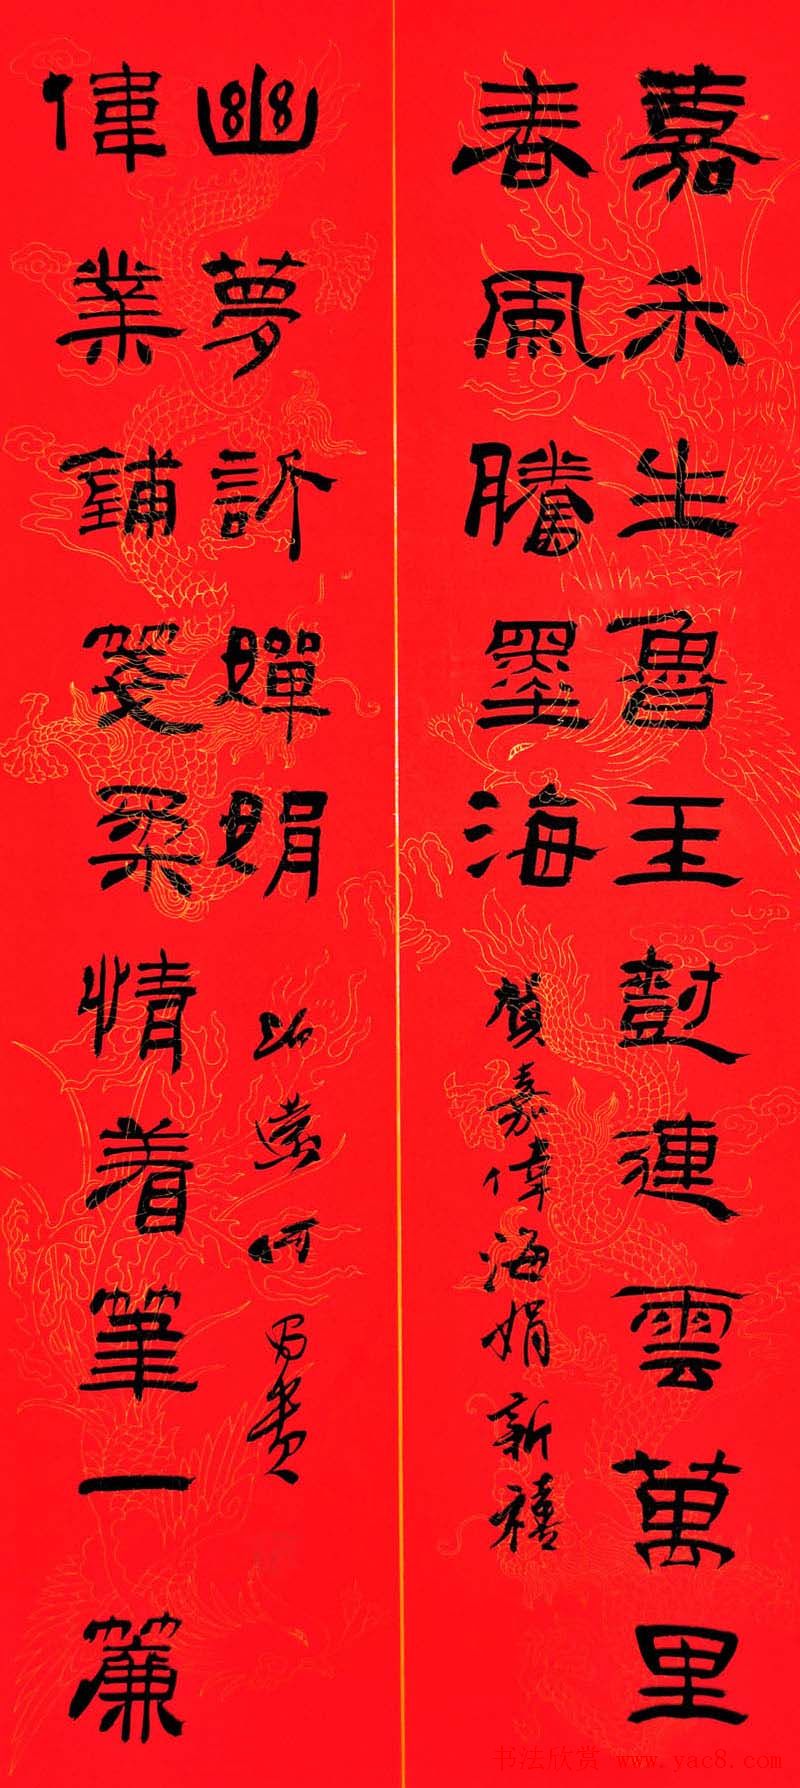 嘉禾生魯王尌連雲萬里
春風騰墨海
賀嘉偉海娟新禧
偉業鋪箋柔情着筆一簾
幽夢訴嬋娟
何昌貴
书法欣赏 www.yac8.com